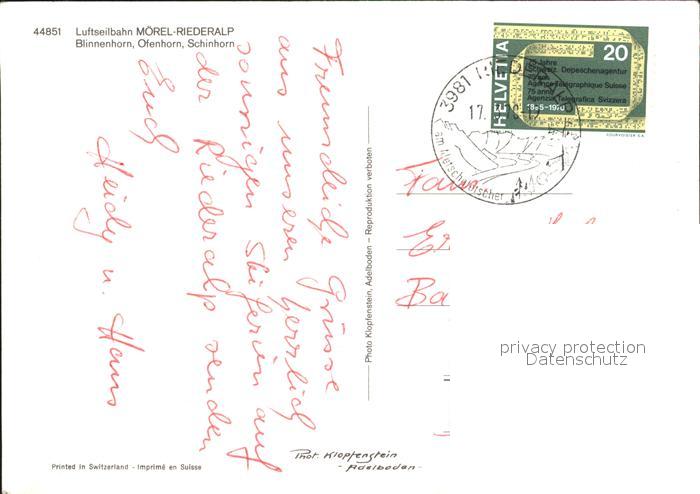 44851 Luftseilbahn MÖREL-RIEDERALP
Blinnenhorn, Ofenhorn, Schinhorn
Freundliche Grüsse
aus unseren herrlich
sonnigen Skiferien auf
der Riederalp senden
Euch
Heidy u. Hans
Photo Klopfenstein, Adelboden – Reproduktion verboten
Printed in Switzerland - Imprimé en Suisse
Phot. Klopfenstein
- Adelboden -
HELVETIA
20
75 Jahre
Schweiz. Depeschenagentur
Agence Télégraphique Suisse
75 anni
Agenzia Telegrafica Svizzera
1895-1970
COURVOISIER S.A.
3981
17.
am Aletschgletscher
Fam
Ba
privacy protection
Datenschutz